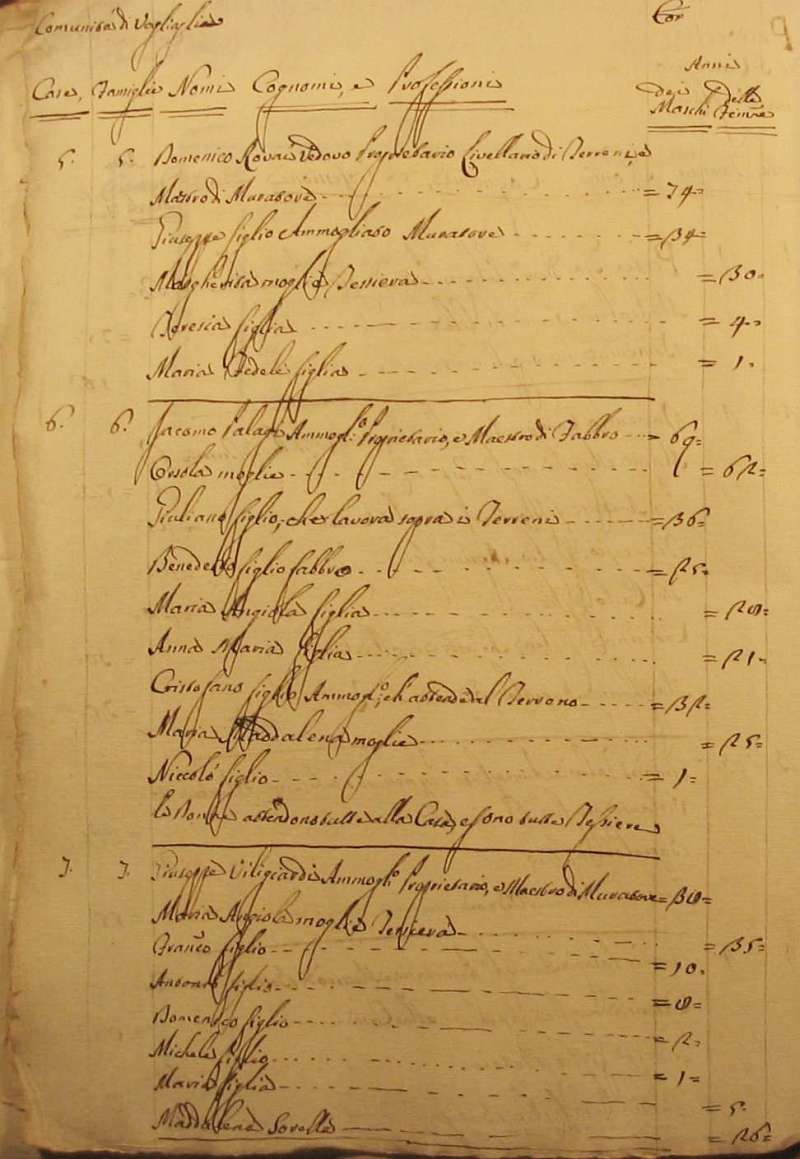 Comunità di Vagliaglia
Case, Famiglie Nomi Cognomi, e Professioni
Anni
dei Maschi
delle Femine
5. 5. Domenico Rovai Vedovo Proprietario Livellario di Terreni, e
Mastro di Muratore = 74 =
Giuseppe figlio Ammogliato Muratore = 34 =
Margherita moglie Tessiera = 30 =
Teresia figlia = 4 =
Maria Fedele figlia = 1.
6. 6. Jacomo Ammogl:º Proprietario, e Maestro di Fabbro = 69 =
Orsola moglie = 62 =
Giuliano figlio, che lavora sopra i Terreni = 36 =
Benedetto figlio fabbro = 25 =
Maria Angiola figlia
Anna Maria figlia = 21 =
Cristofano figlio Ammogl:º, ch'attende al Terreno = 32 =
Maria Maddalena moglie = 25 =
Niccolò figlio = 1 =
le Donne attendono tutte alla Casa, e sono tutte Tessiere
7. 7. Giuseppe Ammogl:º Proprietario, e Maestro di Muratore
Maria Angiola moglie Tessiera = 35 =
Franco figlio = 10.
Antonio figlio
Domenico figlio = 2 =
Michele figlio = 1 =
Maria figlia = 5 =
Maddalena Sorella = 26 =